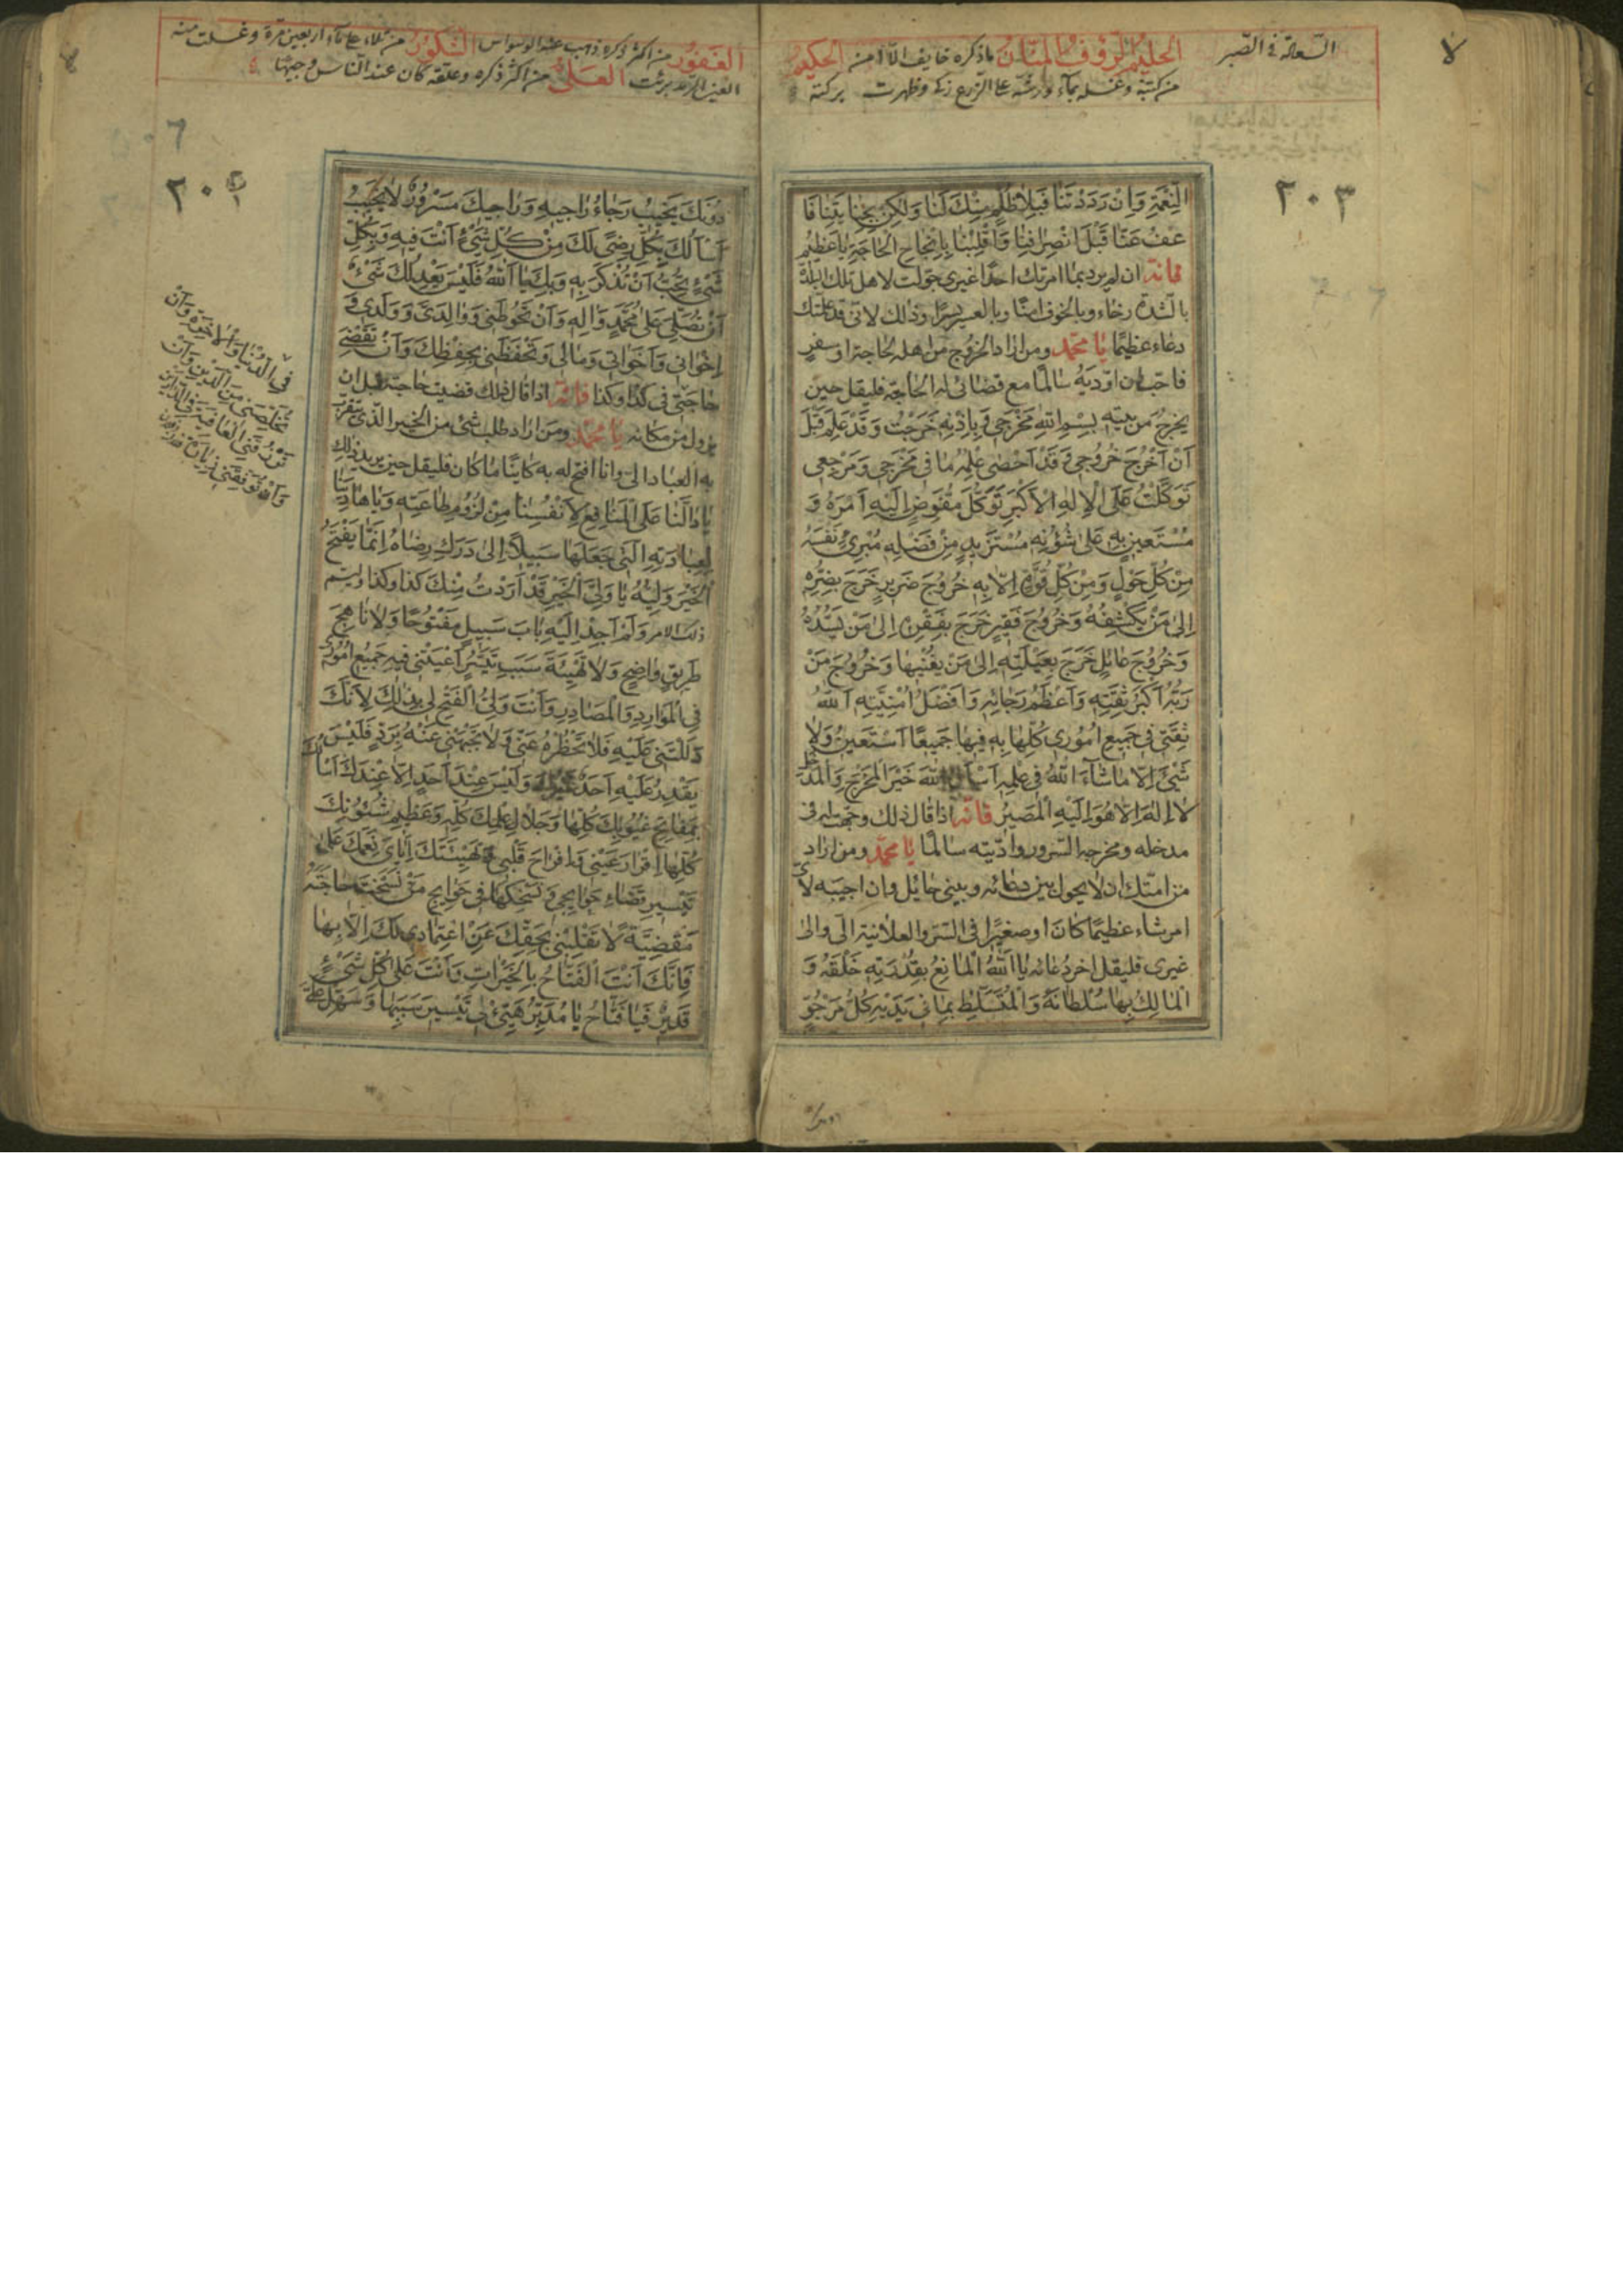 السعادة في الصبر
الحليم الرؤف المنان ماذكره خايف الا امن الحكيم
من كتبه وغسله بماء ورشه على الزرع زكى وظهرت بركته
٢٠٣
النعمة وان رددتنا فبلا ظلم منك لنا ولكن بجنايتنا فا
عف عنا قبل انصرافنا واقلبنا بانجاح الحاجة يا عظيم
فانه ان لم يرد بما امرتك احدا غيرى حولت لاهل تلك البلدة
بالشدة رخاء وبالخوف امنا وبالعسر يسرا وذلك لانى قد علمتك
دعاء عظيما يا محمد ومن اراد الخروج من اهله لحاجة او سفر
فاحب ان اوديه سالما مع قضائى له الحاجة فليقل حين
يخرج من بيته بسم الله مخرجى وباذنه خرجت وقد علم قبل
ان اخرج خروجى وقد احصى علمه ما فى مخرجى ومرجعى
توكلت على الاله الاكبر توكل مفوض اليه امره و
مستعين به على شؤنه مستزيد من فضله مبرئ نفسه
من كل حول ومن كل قوة الا به خروج ضرير خرج بضره
الى من يكشفه وخروج فقير خرج بفقره الى من يسده
وخروج عائل خرج بعيلته الى من يغنيها وخروج من
ربه اكبر ثقته واعظم رجائه وافضل امنيته الله
ثقتى فى جميع امورى كلها به فيها جميعا استعين ولا
شئ الا ما شاء الله فى علمه اسال الله خير المخرج والمدخل
لا اله الا هو اليه المصير فانه اذا قال ذلك وجهت له فى
مدخله ومخرجه السرور واديته سالما يا محمد ومن اراد
من امتك ان لا يحول بين دعائه وبينى حائل وان اجيبه لأى
امر شاء عظيما كان او صغيرا فى السر والعلانية الى والى
غيرى فليقل اخر دعائه يا الله المانع بقدرته خلقه و
المالك بها سلطانه والمتسلط بما فى يديه كل مرجو
الغفور من اكثر ذكره ذهب عنه الوسواس الشكور من تلاه على ماء اربعين مرة وغسلت منه
العين الرمد برئت العلى من اكثر ذكره وعلقه كان عند الناس وجيها
دونك يخيب رجاء راجيه وراجيك مسرور لا يخيب
اسالك بكل رضى لك من كل شئ انت فيه وبكل
شئ تحب ان تذكر به وبك يا الله فليس يعدلك شئ
ان تصلى على محمد واله وان تحوطنى ووالدى وولدى و
اخوانى واخواتى ومالى وتحفظنى بحفظك وان تقضى
حاجتى فى كذا وكذا فانه اذا قال ذلك قضيت حاجته قبل ان
يزول من مكانه يا محمد ومن اراد طلب شئ من الخير الذى يتقرب
به العباد الى وانا افتح له به كاينا ما كان فليقل حين يريد ذلك
يا دالنا على المنافع لانفسنا من لزوم طاعته ويا هادينا
لعبادته التى جعلها سبيلا الى درك رضاه انما يفتح
الخير وليه يا ولى الخير قد اردت منك كذا وكذا ويسم
ذلك الامر ولم اجد اليه باب سبيل مفتوحا ولا ناهج
طريق واضح ولا تهيئة سبب تيسر اعيتنى فيه جميع امورى
فى الموارد والمصادر وانت ولى الفتح لى بذلك لانك
دللتنى عليه فلا تحظره عنى ولا تجبهنى عنه برد فليس
يقدر عليه احد غيرك وليس عند احد الا عندك اسالك
بمفاتح غيوبك كلها وجلال علمك كله وعظيم شئونك
كلها اقرار عينى وافراح قلبى وتهنيتك اياى نعمك على
تيسير قضاء حوايجى ونسخكها فى حوايج من نسخت حاجته
مقضية لا تقلبنى بحقك عن اعتمادى لك الا بها
فانك انت الفتاح بالخيرات وانت على كل شئ
قدير فيا فتاح يا مدبر هيئ لى تيسير سببها وسهل على
فى الدنيا والاخرة وان
تخلصنى من الدين وان
ترزقنى العافية فى الدارين
وان توفقنى